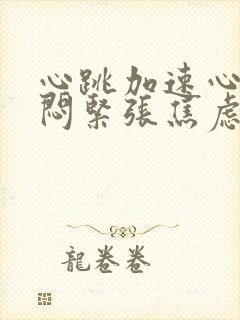 心跳加速心
悶緊張焦慮
龍卷卷